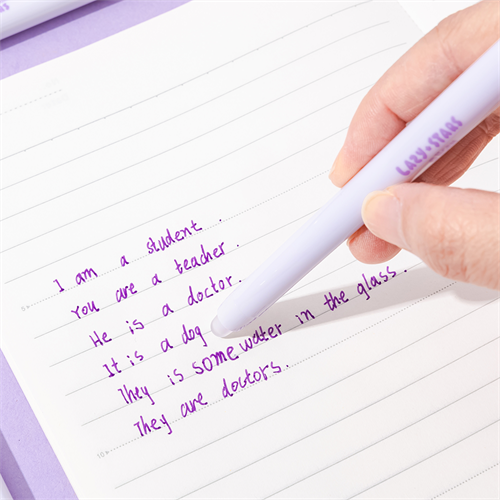 LAZY·STARS
I am a student.
You are a teacher.
He is a doctor.
It is a dog
They is some water in the glass.
They are doctors.